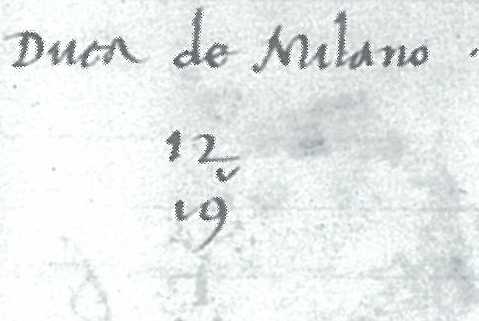 Duca de Milano.
12
v
19